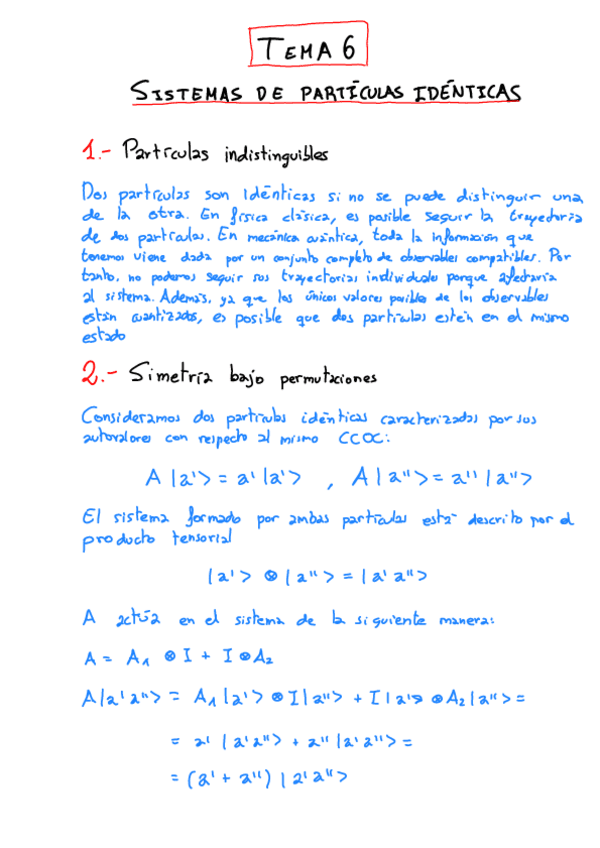 TEMA 6
SISTEMAS DE PARTÍCULAS IDÉNTICAS
1.- Partículas indistinguibles
Dos partículas son idénticas si no se puede distinguir una
de la otra. En física clásica, es posible seguir la trayectoria
de dos partículas. En mecánica cuántica, toda la información que
tenemos viene dada por un conjunto completo de observables compatibles. Por
tanto, no podemos seguir sus trayectorias individuales porque afectaría
al sistema. Además, ya que los únicos valores posibles de los observables
están cuantizados, es posible que dos partículas estén en el mismo
estado
2.- Simetría bajo permutaciones
Consideramos dos partículas idénticas caracterizadas por sus
autovalores con respecto al mismo CCOC:
A |a'> = a' |a'> , A |a''> = a'' |a''>
El sistema formado por ambas partículas está descrito por el
producto tensorial
|a'> ⊗ |a''> = |a' a''>
A actúa en el sistema de la siguiente manera:
A = A₁ ⊗ I + I ⊗ A₂
A|a'a''> = A₁|a'> ⊗ I|a''> + I|a'> ⊗ A₂|a''> =
= a' |a'a''> + a'' |a'a''> =
= (a' + a'') |a'a''>